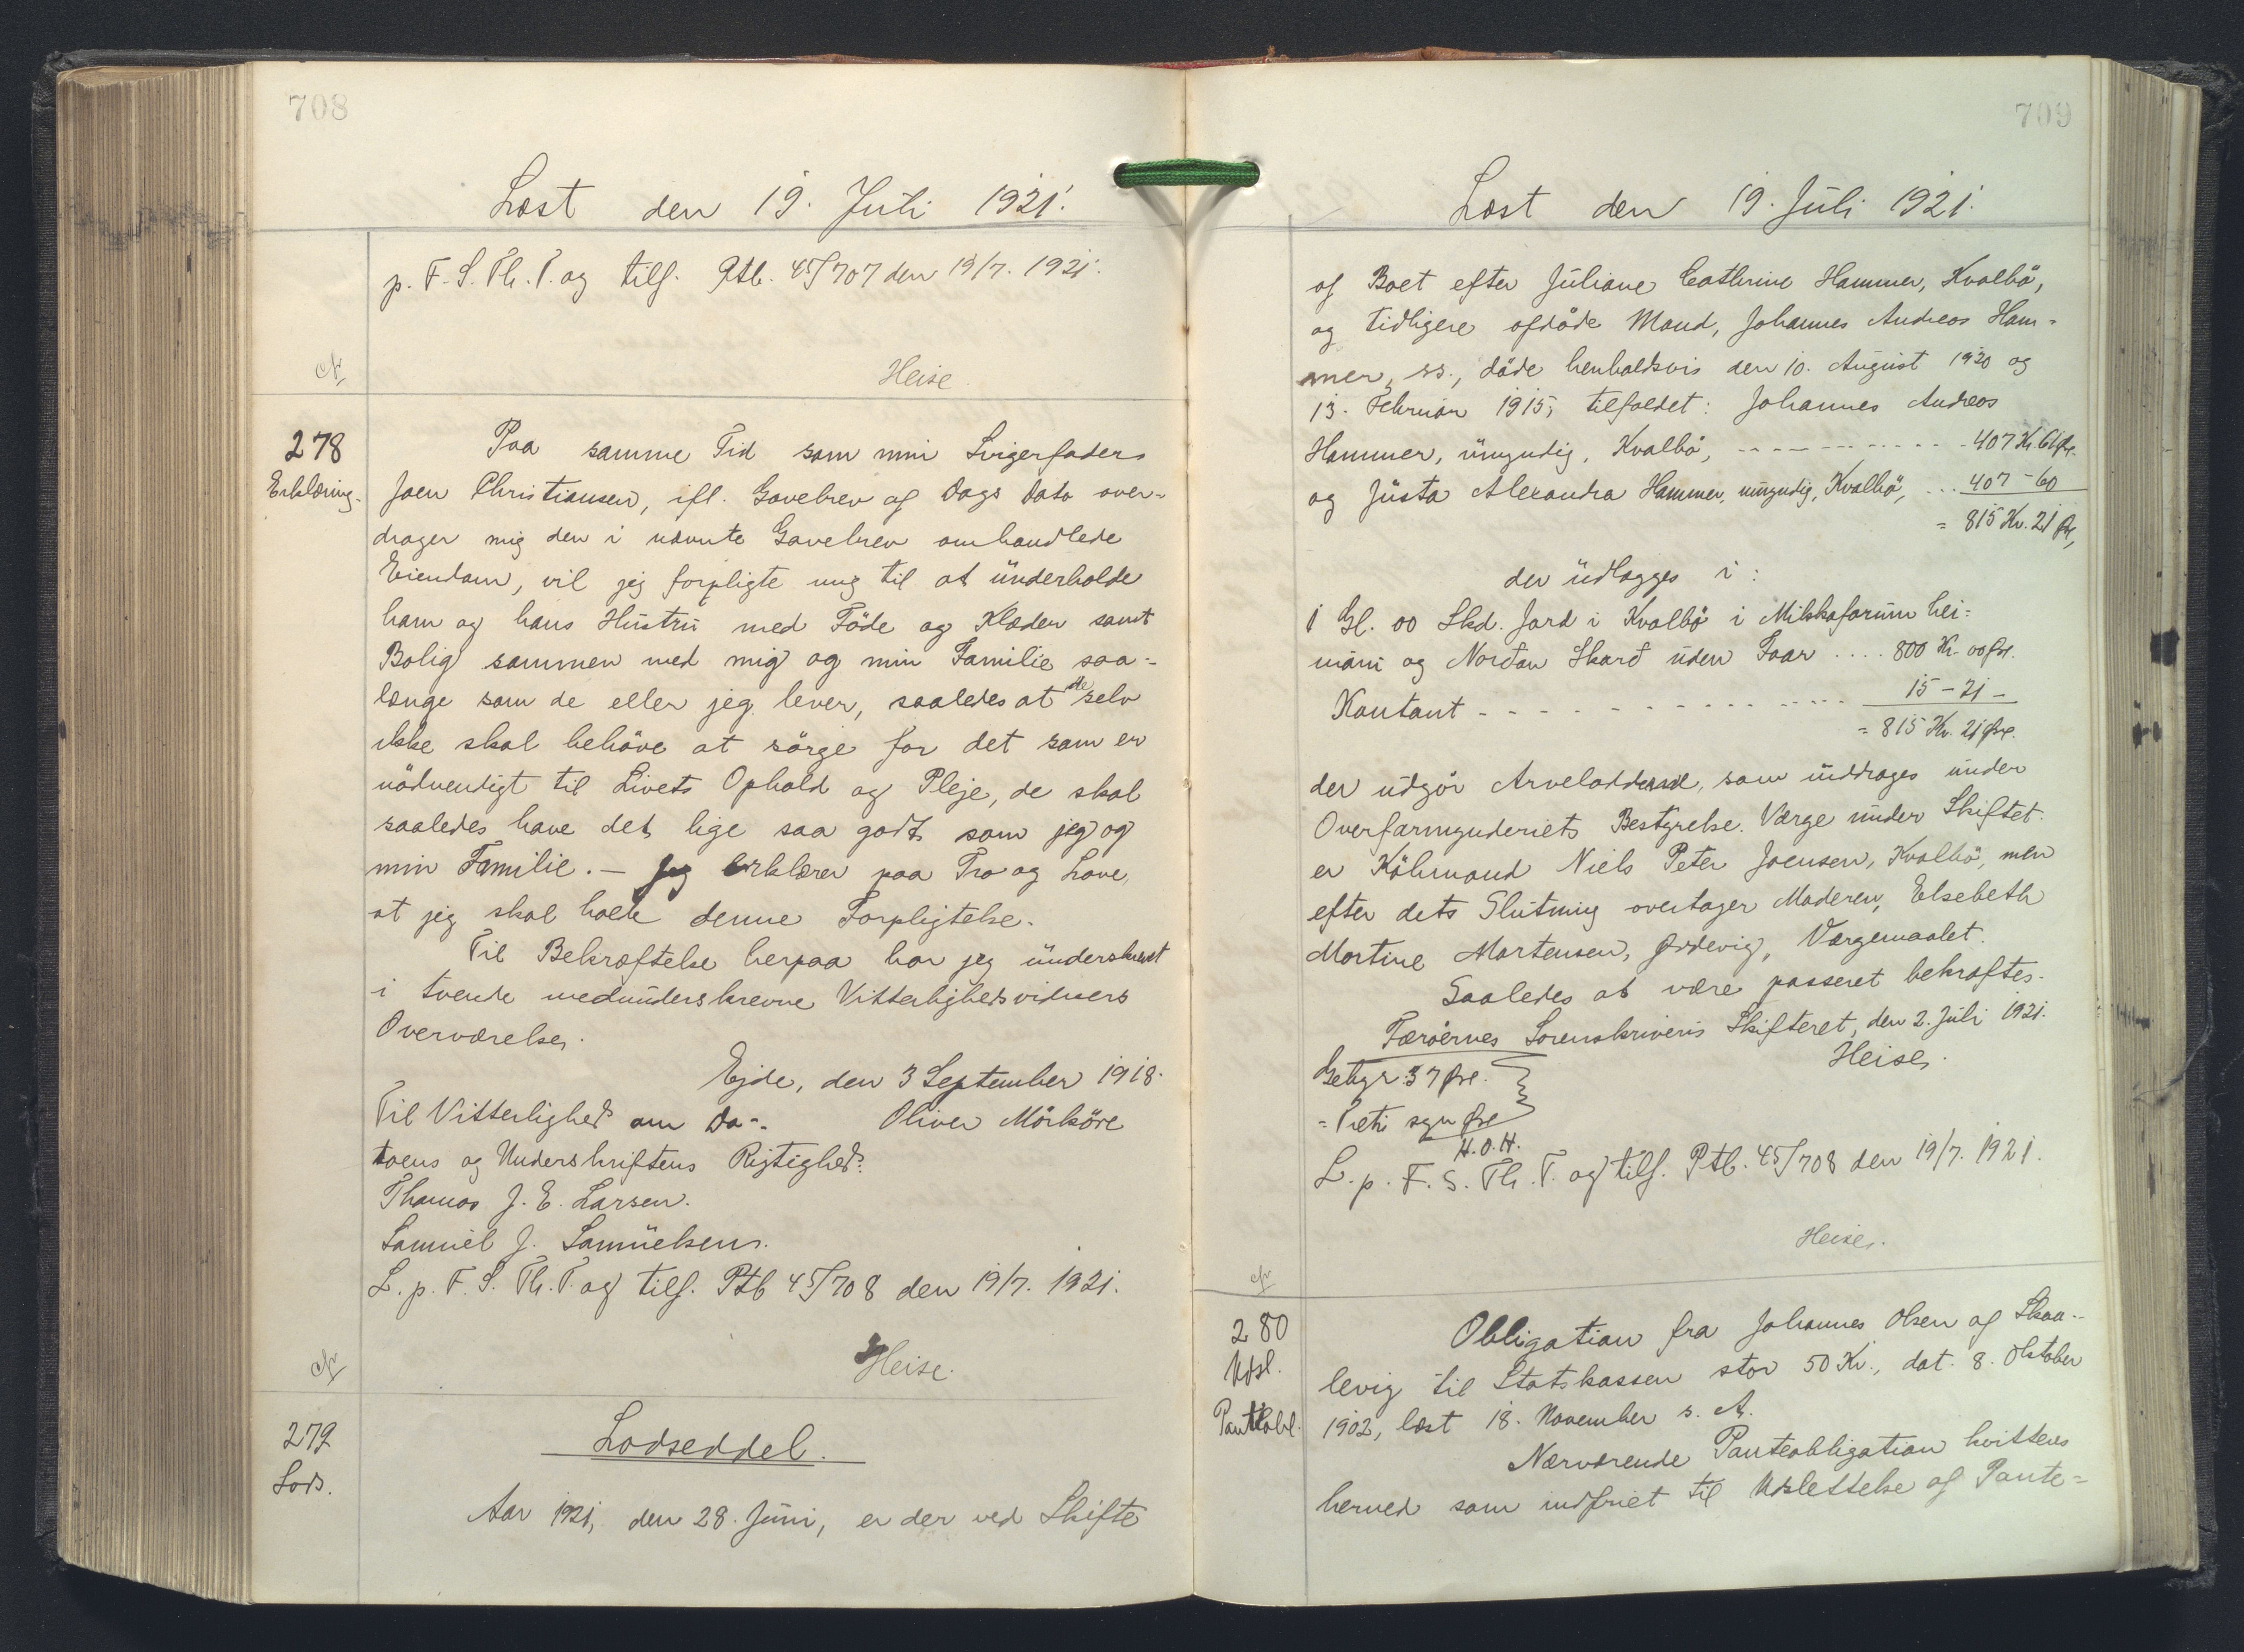 708
Læst den 19. Juli 1921.
p. F. S. Th. T. og tilf. Ptb. 45/707 den 19/7. 1921.
Heise.
278
Erklæring.
Paa samme Tid som min Svigerfader
Joen Christiansen, ifl. Gavebrev af Dags Dato over-
drager mig den i nævnte Gavebrev omhandlede
Eiendom, vil jeg forpligte mig til at underholde
ham og hans Hustru med Föde og Klæder samt
Bolig sammen med mig og min Familie saa-
længe som de eller jeg lever, saaledes at de selv
ikke skal behöve at sörge for det som er
nödvendigt til Livets Ophold og Pleje, de skal
saaledes have det lige saa godt som jeg og
min Familie. — Jeg erklærer paa Tro og Love,
at jeg skal holde denne Forpligtelse.
Til Bekræftelse herpaa har jeg underskrevet
i tvende medunderskrevne Vitterlighedsvidners
Overværelse.
Ejde, den 3 September 1918.
Til Vitterlighed om Da-
Oliver Mörköre
toens og Underskriftens Rigtighed:
Thomas J. E. Larsen.
Samuel J. Samuelsen.
L. p. F. S. Th. T. og tilf. Ptb 45/708 den 19/7. 1921.
Heise.
279
Lods.
Lodseddel.
Aar 1921, den 28. Juni, er der ved Skifte
709
Læst den 19. Juli 1921.
af Boet efter Juliane Cathrine Hammer, Kvalbö,
og tidligere afdöde Mand, Johannes Andreas Ham-
mer, ss., döde henholdsvis den 10. August 1920 og
13. Februar 1915, tilfaldet: Johannes Andreas
Hammer, umyndig, Kvalbö, - - - - 407 Kr 61 Øre.
og Justa Alexandra Hammer, umyndig, Kvalbö, ... 407 - 60
= 815 Kr. 21 Øre,
der udlægges i:
1 Gl. 00 Skd. Jord i Kvalbö i Mikkaforum hei-
máni og Norðan Skarð uden Faar .... 800 Kr. 00 Øre.
Kontant - - - - 15 - 21 -
= 815 Kr. 21 Øre.
der udgör Arvelodderne, som inddrages under
Overformynderiets Bestyrelse. Værge under Skiftet
er Köbmand Niels Peter Joensen, Kvalbö, men
efter dets Slutning overtager Moderen, Elsebeth
Martine Mortensen, Ørdevig, Værgemaalet.
Saaledes at være passeret bekræftes.
Færøernes Sorenskriveris Skifteret, den 2. Juli 1921.
Heise.
Gebyr 37 Øre.
= Treti syv Øre
H. O. H.
L. p. F. S. Th. T. og tilf. Ptb. 45/708 den 19/7. 1921.
Heise.
280
Udsl.
Panteobl.
Obligation fra Johannes Olsen af Skaa-
levig til Statskassen stor 50 Kr., dat. 8. Oktober
1902, læst 18. November s. A.
Nærværende Panteobligation kvitteres
herved som indfriet til Udslettelse af Pante-